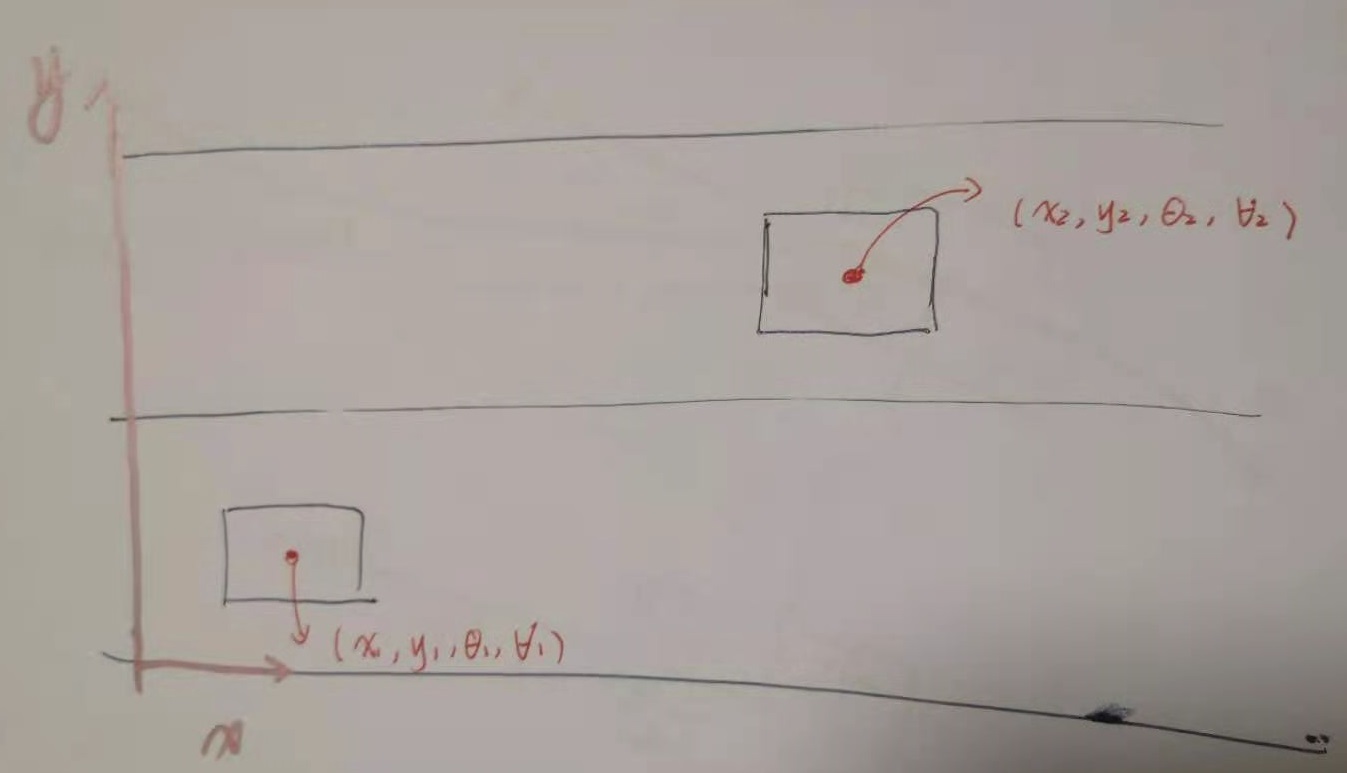 y
(x₂, y₂, θ₂, ∀₂)
(x₁, y₁, θ₁, ∀₁)
x